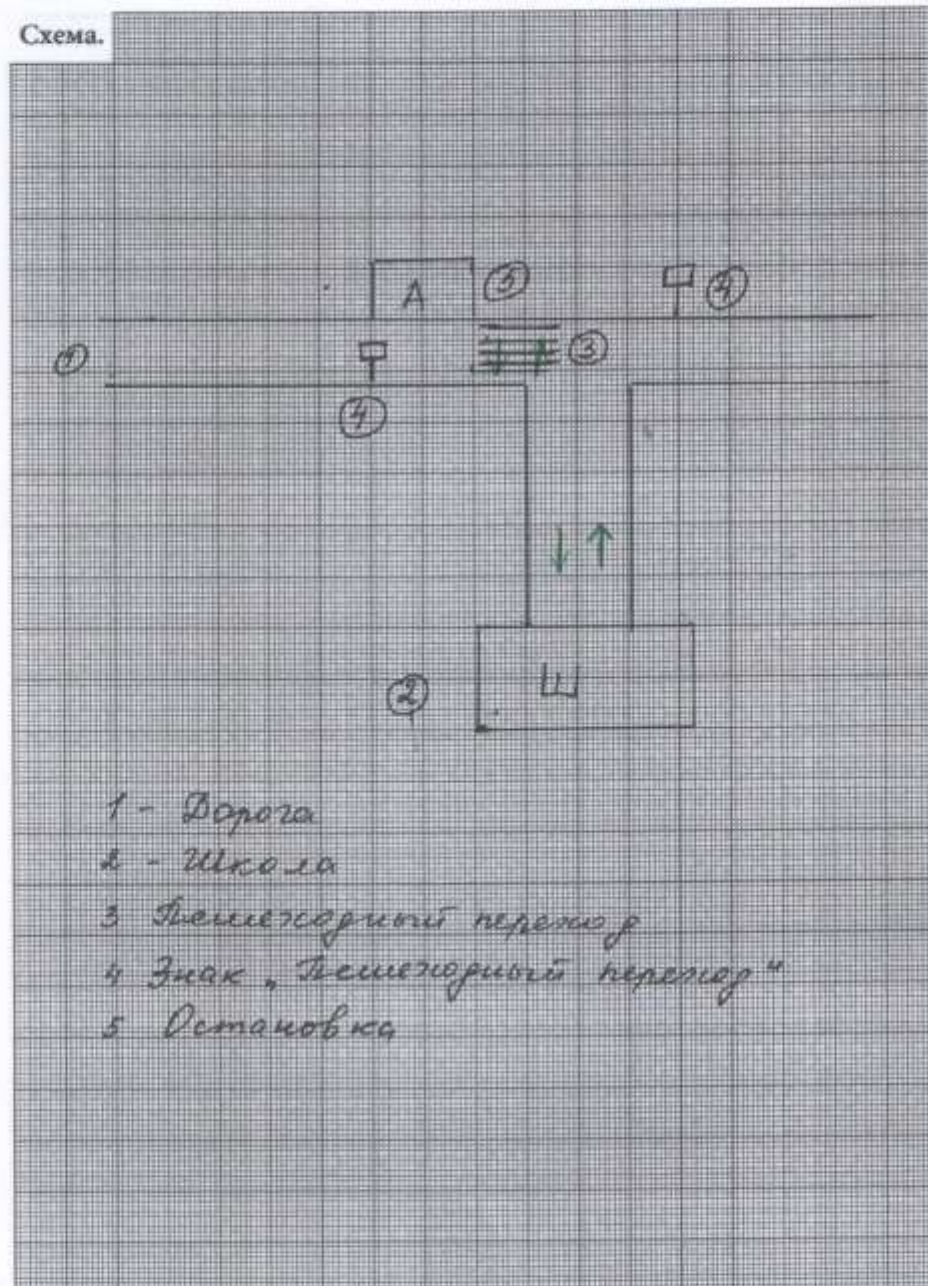 Схема.
А 5 4
1 3
4
2 Ш
1 - Дорога
2 - Школа
3 Пешеходный переход
4 Знак „Пешеходный переход"
5 Остановка